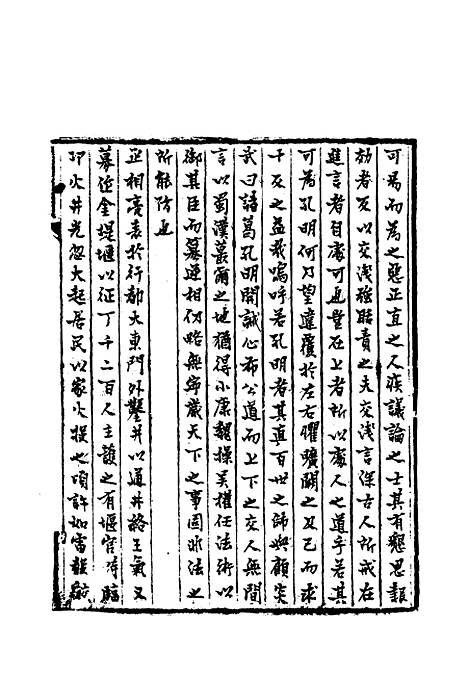 可為而為之惡正直之人疾議論之士其有懇思報
効者反以交淺強聒責之夫交淺言深古人所戒在
進言者自處可也豈在上者所以處人之道乎若其
可為孔明何乃望違覆於左右懼曠闕之及己而求
十反之益哉嗚呼若孔明者其真百世之師與顧炎
武曰諸葛孔明開誠心布公道而上下之交人無間
言以蜀漢蕞爾之地猶得小康魏操吳權任法術以
御其臣而篡逆相仍略無寧歲天下之事固非法之
所能防也
丞相亮表於行都大東門外鑿井以通井絡王氣又
慕近金堤堰以征丁千二百人主護之有堰官時臨
邛火井光忽大起居民以家火投之頃許如雷聲